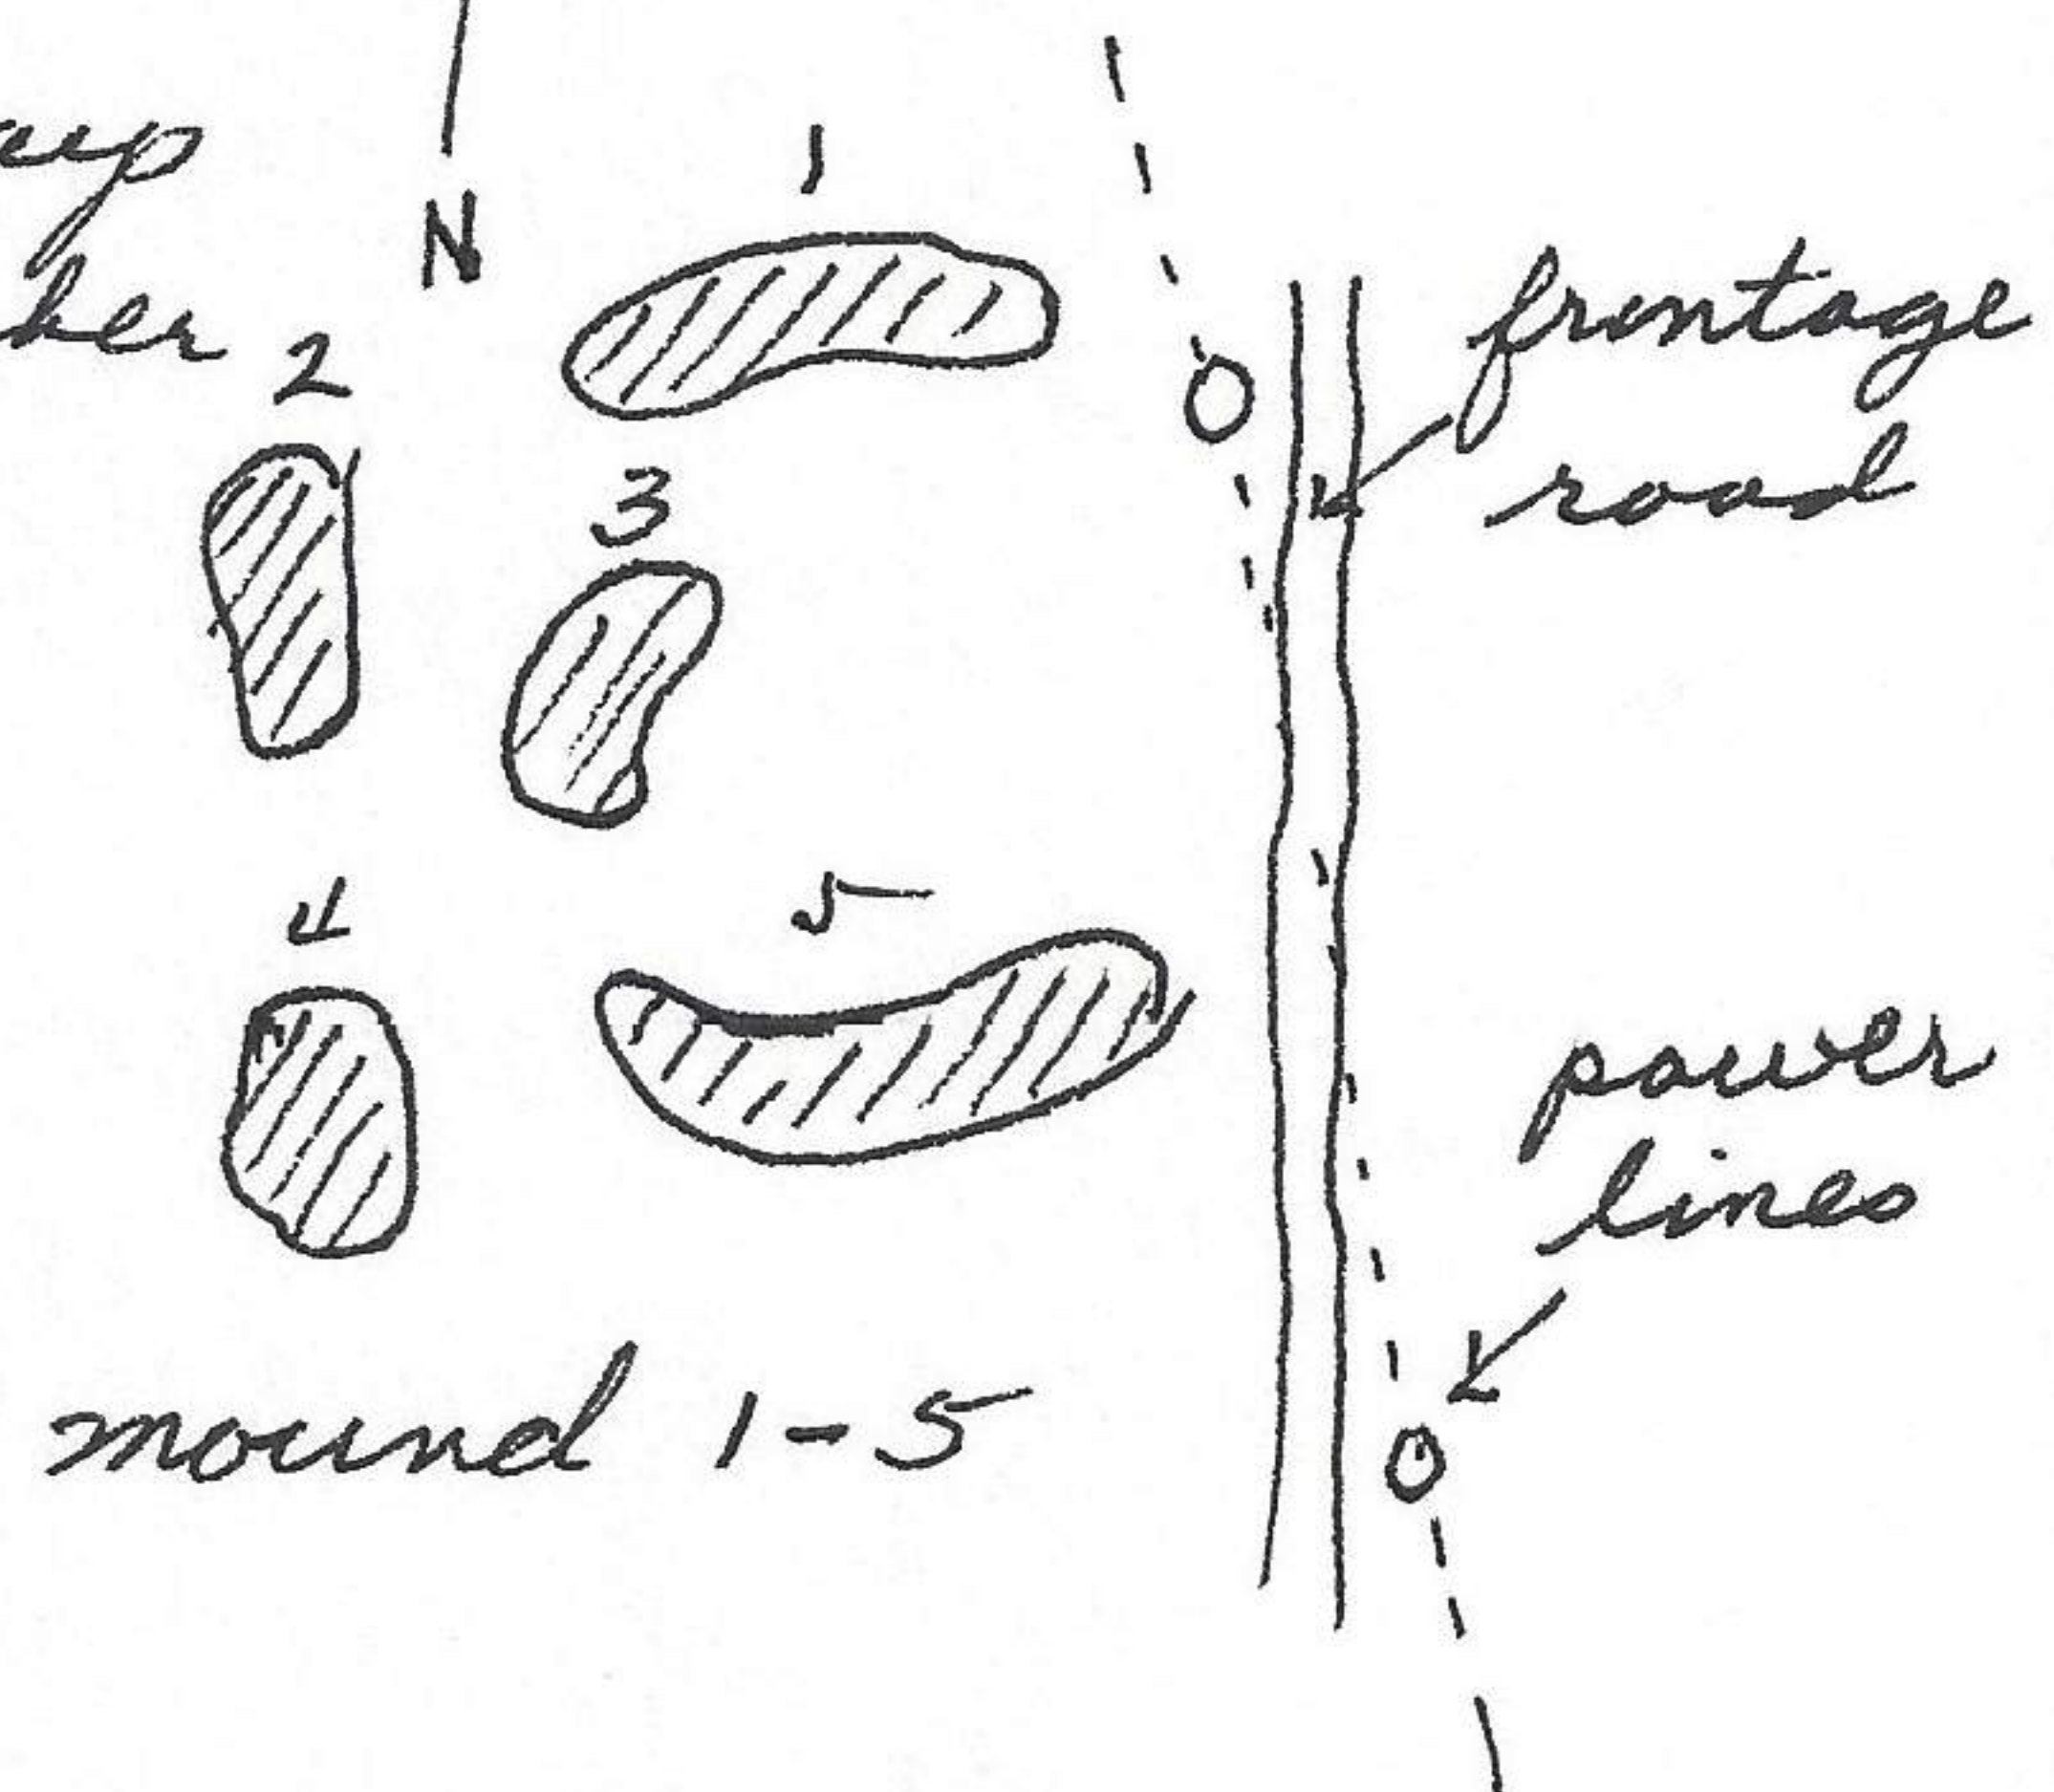 N
1
2
3
frontage
road
4
5
power
lines
mound 1-5